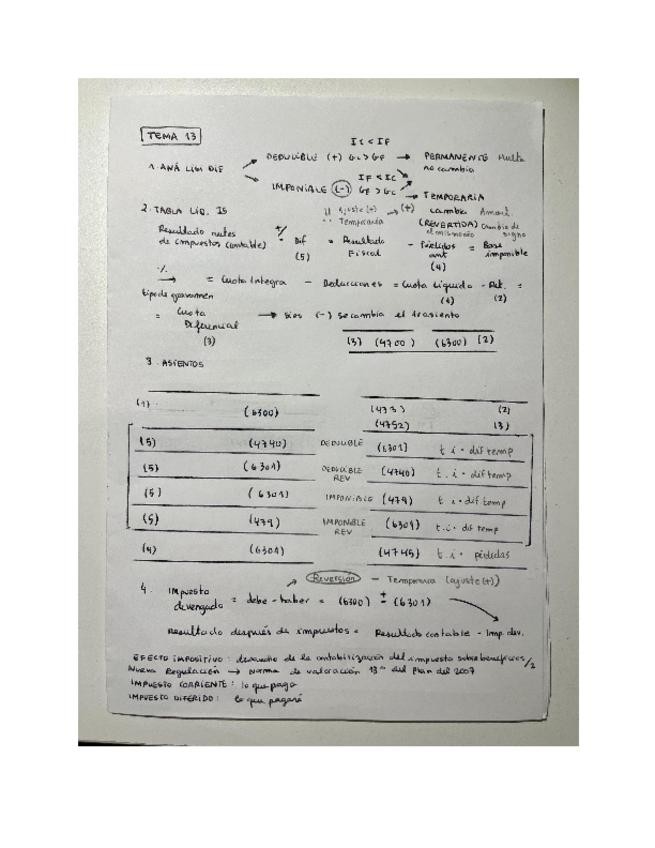 TEMA 13
IC < IF
DEDUCIBLE (+) GC > GF → PERMANENTE Multa
no cambia
1. ANÁLISI DIF
IF < IC
IMPONIBLE (-) GF > GC
→ TEMPORARIA
2. TABLA LIQ. IS
ajuste (+) → (+) cambia Amort.
Temporaria (REVERTIDA) cambia de
signo
Resultado antes +/- Dif = Resultado - Pérdidas = Base
de impuestos (contable) (5) Fiscal ant imponible
(4)
·/. → = Cuota Integra - Deducciones = Cuota Líquida - Ret. =
tipo de gravamen (1) (2)
= Cuota → si es (-) se cambia el asiento
Diferencial
(3) (3) (4700) (6300) (2)
3. ASIENTOS
(1) (6300) (473) (2)
(4752) (3)
(5) (4740) DEDUCIBLE (6301) t.i · dif temp
(5) (6301) DEDUCIBLE REV (4740) t.i · dif temp
(5) (6301) IMPONIBLE (479) t.i · dif temp
(5) (479) IMPONIBLE REV (6301) t.i · dif temp
(4) (6301) (4745) t.i · pérdidas
Reversión - Temporaria (ajuste (+))
4. Impuesto
devengado = debe - haber = (6300) ± (6301)
Resultado después de impuestos = Resultado contable - Imp. dev.
EFECTO IMPOSITIVO: de la contabilización del impuesto sobre beneficios
Nueva Regulación → Norma de valoración 13ª del Plan del 2007
IMPUESTO CORRIENTE: lo que pago
IMPUESTO DIFERIDO: lo que pagaré